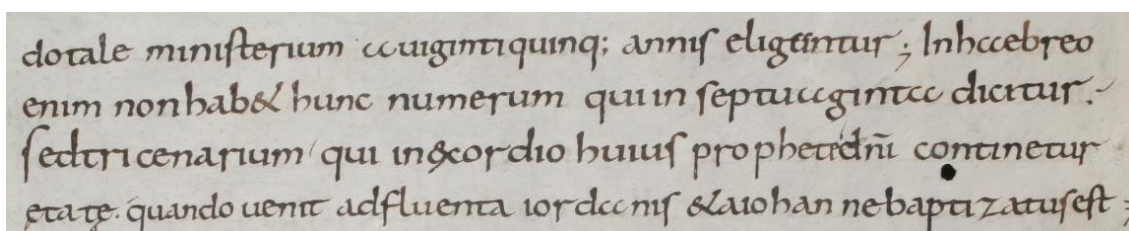 dotale ministerium a uiginti quinq; annis eligantur; In hebreo
enim non hab& hunc numerum qui in septuaginta dicitur.
sed tricenarium qui in exordio huius prophetę & dnī continetur
ętatę. quando uenit ad fluenta iordanis & a iohanne baptizatus est;